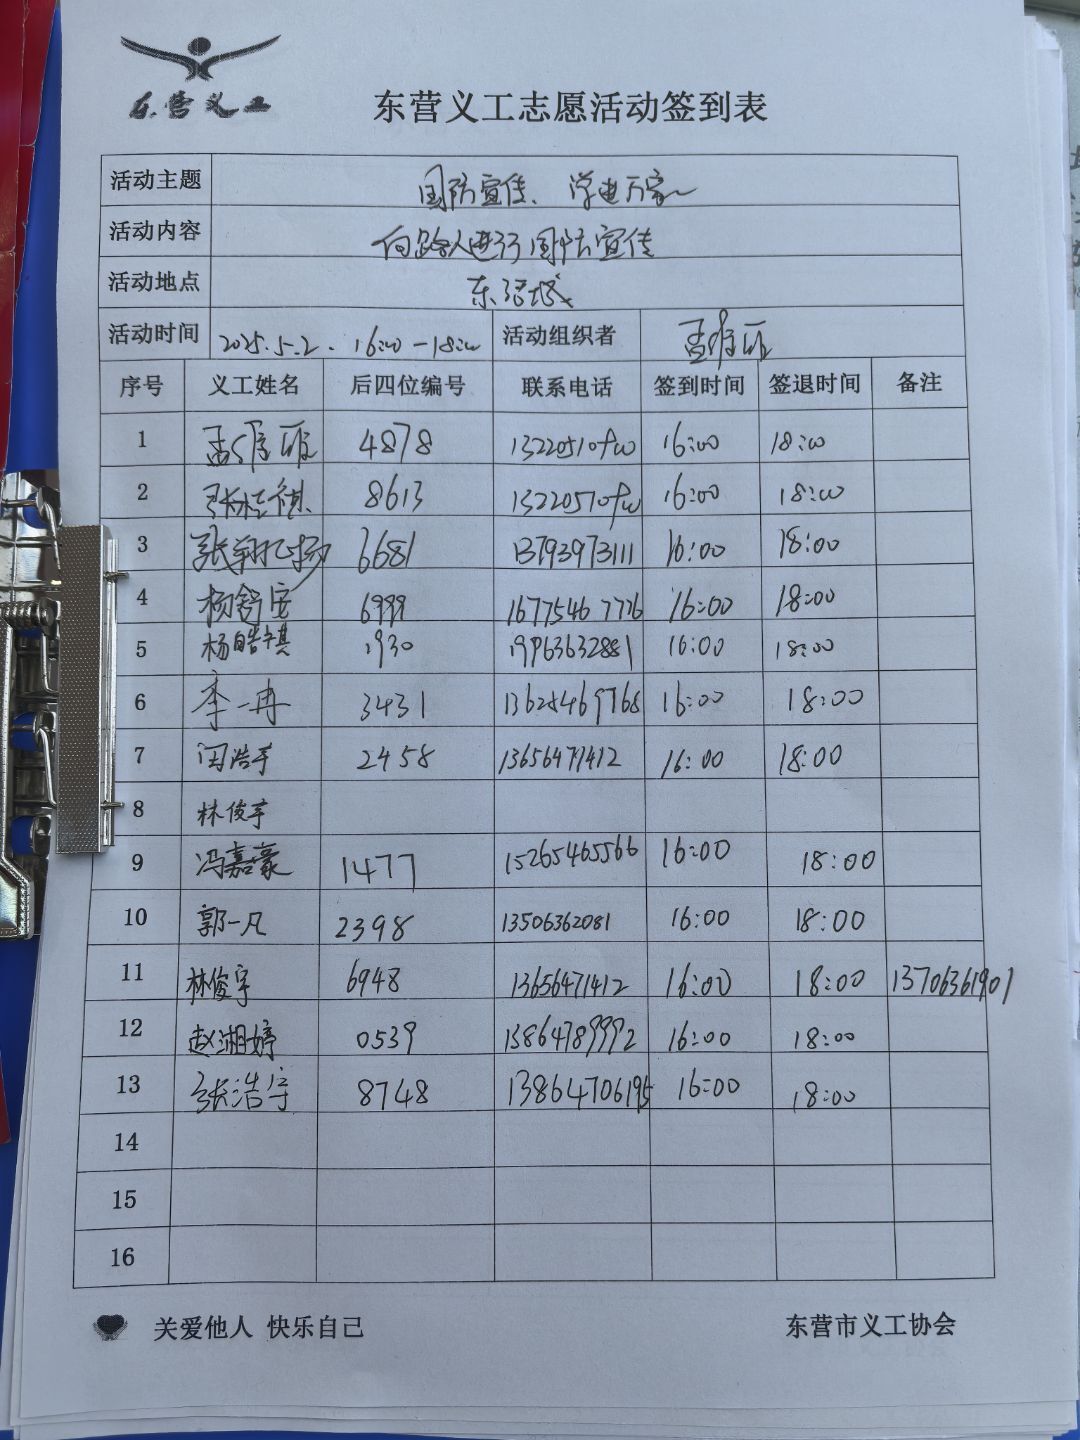 东营义工
东营义工志愿活动签到表
活动主题 国防宣传、 进万家
活动内容 向路人进行国防宣传
活动地点
活动时间 2025.5.2. 16:00-18:00 活动组织者
序号 义工姓名 后四位编号 联系电话 签到时间 签退时间 备注
1 4878 16:00 18:00
2 8613 16:00 18:00
3 6681 13793973111 16:00 18:00
4 杨舒安 6999 16775467776 16:00 18:00
5 杨皓祺 1930 19963632881 16:00 18:00
6 李一冉 3431 13625469768 16:00 18:00
7 闫浩宇 2458 13656471412 16:00 18:00
8 林俊宇
9 冯嘉豪 1477 15265465566 16:00 18:00
10 郭一凡 2398 13506362081 16:00 18:00
11 林俊宇 6948 13656471412 16:00 18:00 13706361901
12 赵湘婷 0539 13864789992 16:00 18:00
13 张浩宇 8748 13864706195 16:00 18:00
14
15
16
关爱他人 快乐自己 东营市义工协会